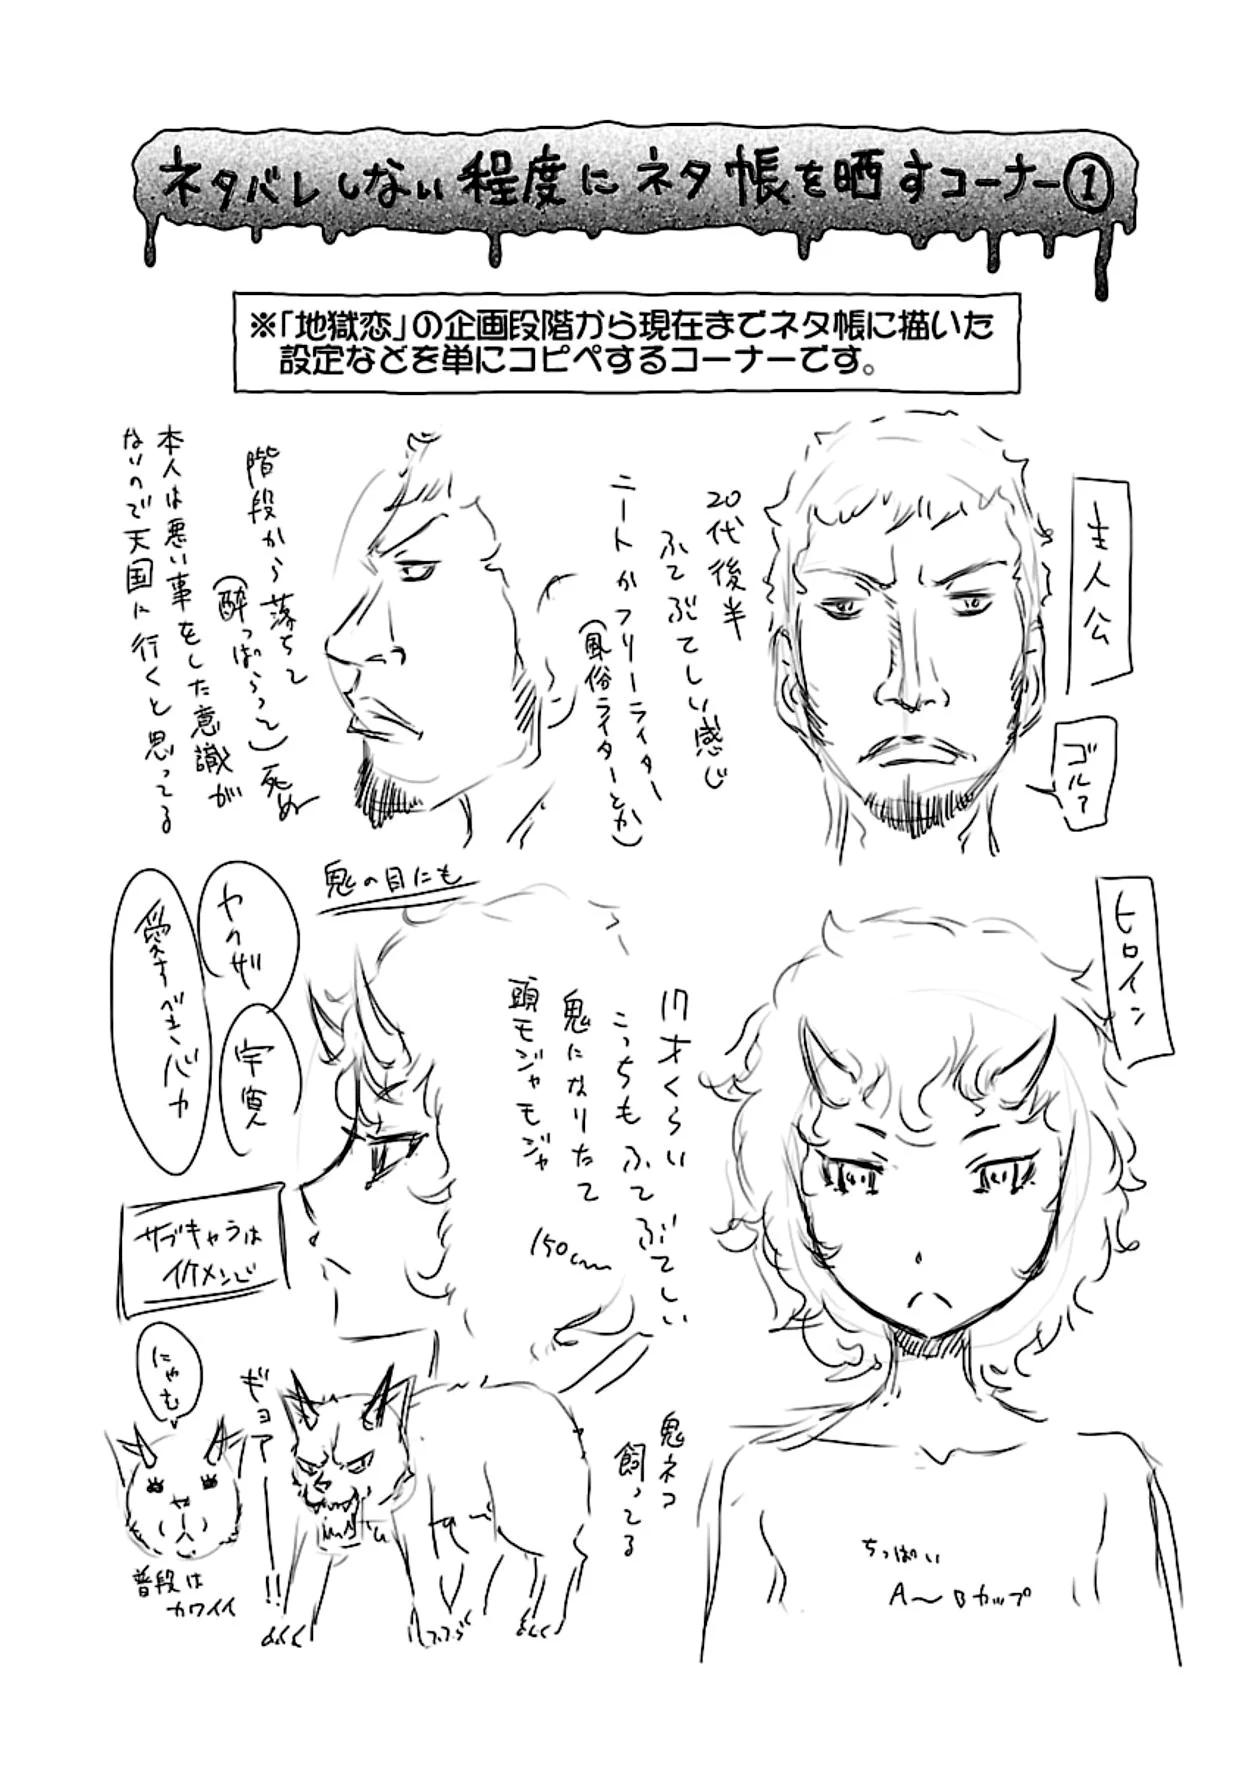 ネタバレしない程度にネタ帳を晒すコーナー①
※「地獄恋」の企画段階から現在までネタ帳に描いた
設定などを単にコピペするコーナーです。
主人公
ゴルァ
20代後半
ふてぶてしい感じ
ニートかフリーライター
(風俗ライターとか)
階段から落ちて
(酔っぱらって)死ぬ
本人は悪い事をした意識が
ないので天国に行くと思ってる
ヒロイン
17才くらい
こっちもふてぶてしい
鬼になりたて
頭モジャモジャ
150cm
鬼の目にも
ヤクザ
愛すべきバカ
サブキャラは
イケメンで
ちっぱい
A〜Bカップ
鬼ネコ
飼ってる
ギョアー!!
にゃむ
普段は
カワイイ